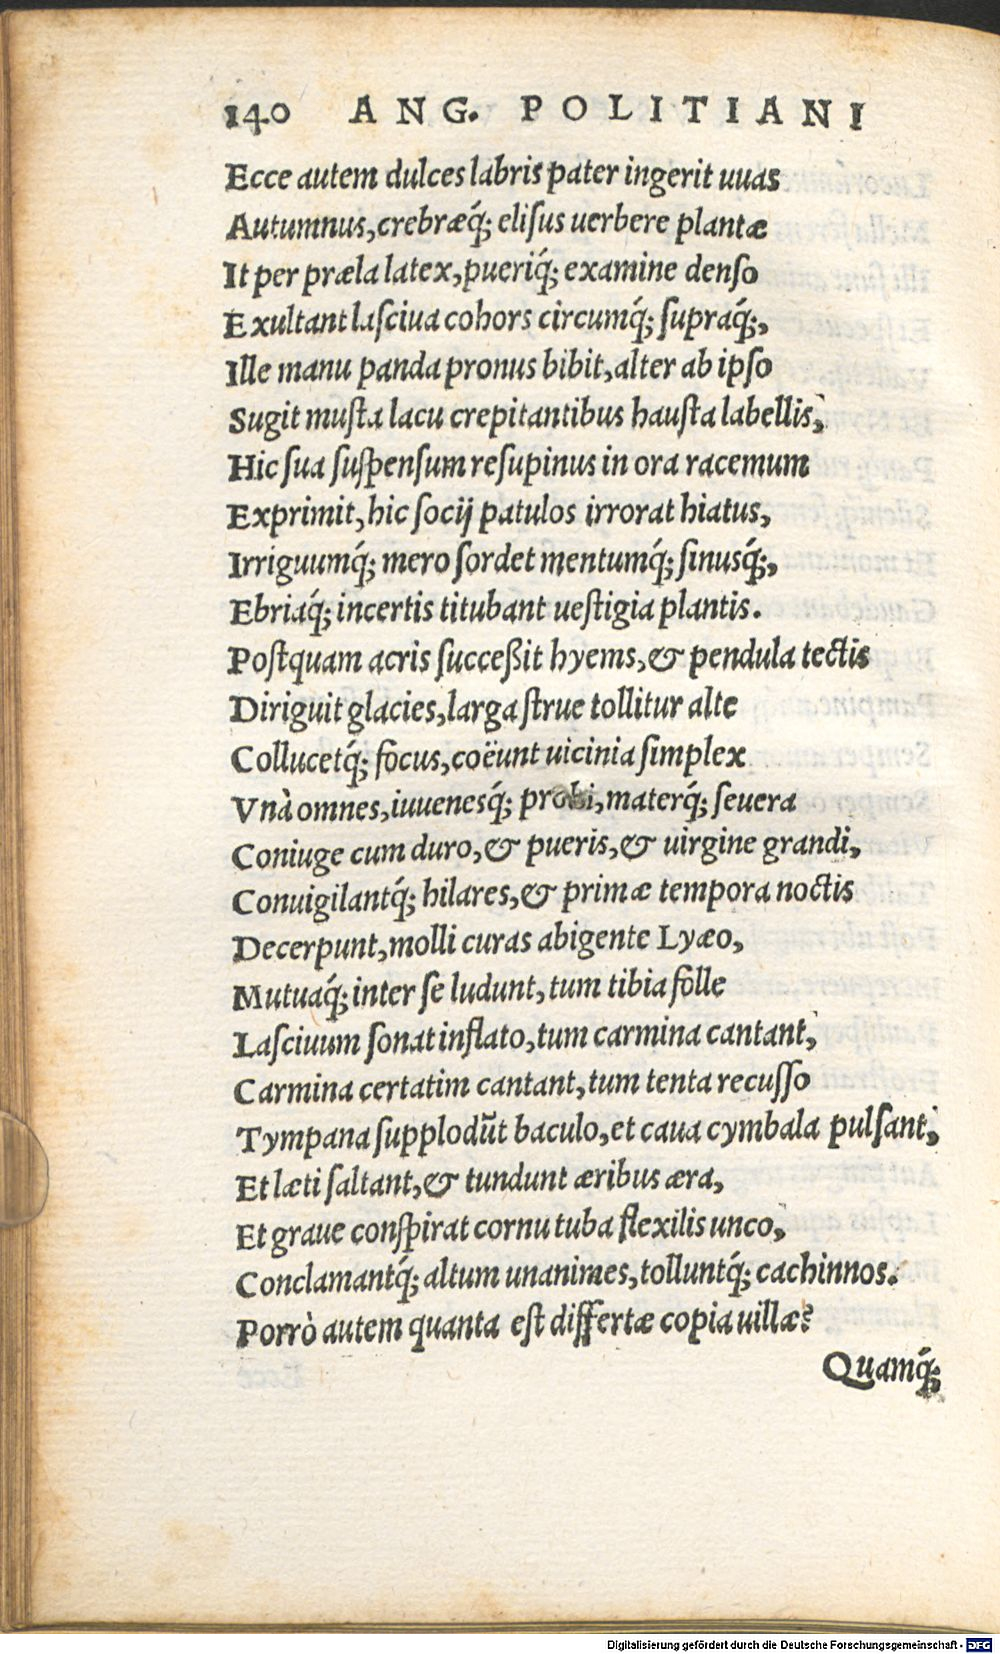 140 ANG. POLITIANI
Ecce autem dulces labris pater ingerit uuas
Autumnus, crebræq́; elisus uerbere plantæ
It per præla latex, pueriq́; examine denso
Exultant lasciua cohors circumq́; supraq́;,
Ille manu panda pronus bibit, alter ab ipso
Sugit musta lacu crepitantibus hausta labellis,
Hic sua suspensum resupinus in ora racemum
Exprimit, hic socij patulos irrorat hiatus,
Irriguumq́; mero sordet mentumq́; sinusq́;,
Ebriaq́; incertis titubant uestigia plantis.
Postquam acris succeßit hyems, & pendula tectis
Diriguit glacies, larga strue tollitur alte
Collucetq́; focus, coëunt uicinia simplex
Vnà omnes, iuuenesq́; probi, materq́; seuera
Coniuge cum duro, & pueris, & uirgine grandi,
Conuigilantq́; hilares, & primæ tempora noctis
Decerpunt, molli curas abigente Lyæo,
Mutuaq́; inter se ludunt, tum tibia folle
Lasciuum sonat inflato, tum carmina cantant,
Carmina certatim cantant, tum tenta recusso
Tympana supplodūt baculo, et caua cymbala pulsant,
Et læti saltant, & tundunt æribus æra,
Et graue conspirat cornu tuba flexilis unco,
Conclamantq́; altum unanimes, tolluntq́; cachinnos.
Porrò autem quanta est differtæ copia uillæ?
Quamq́;
Digitalisierung gefördert durch die Deutsche Forschungsgemeinschaft - DFG